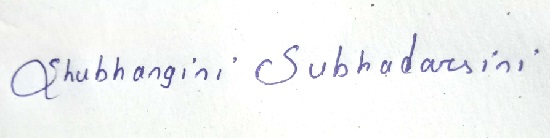 Shubhangini Subhadarsini